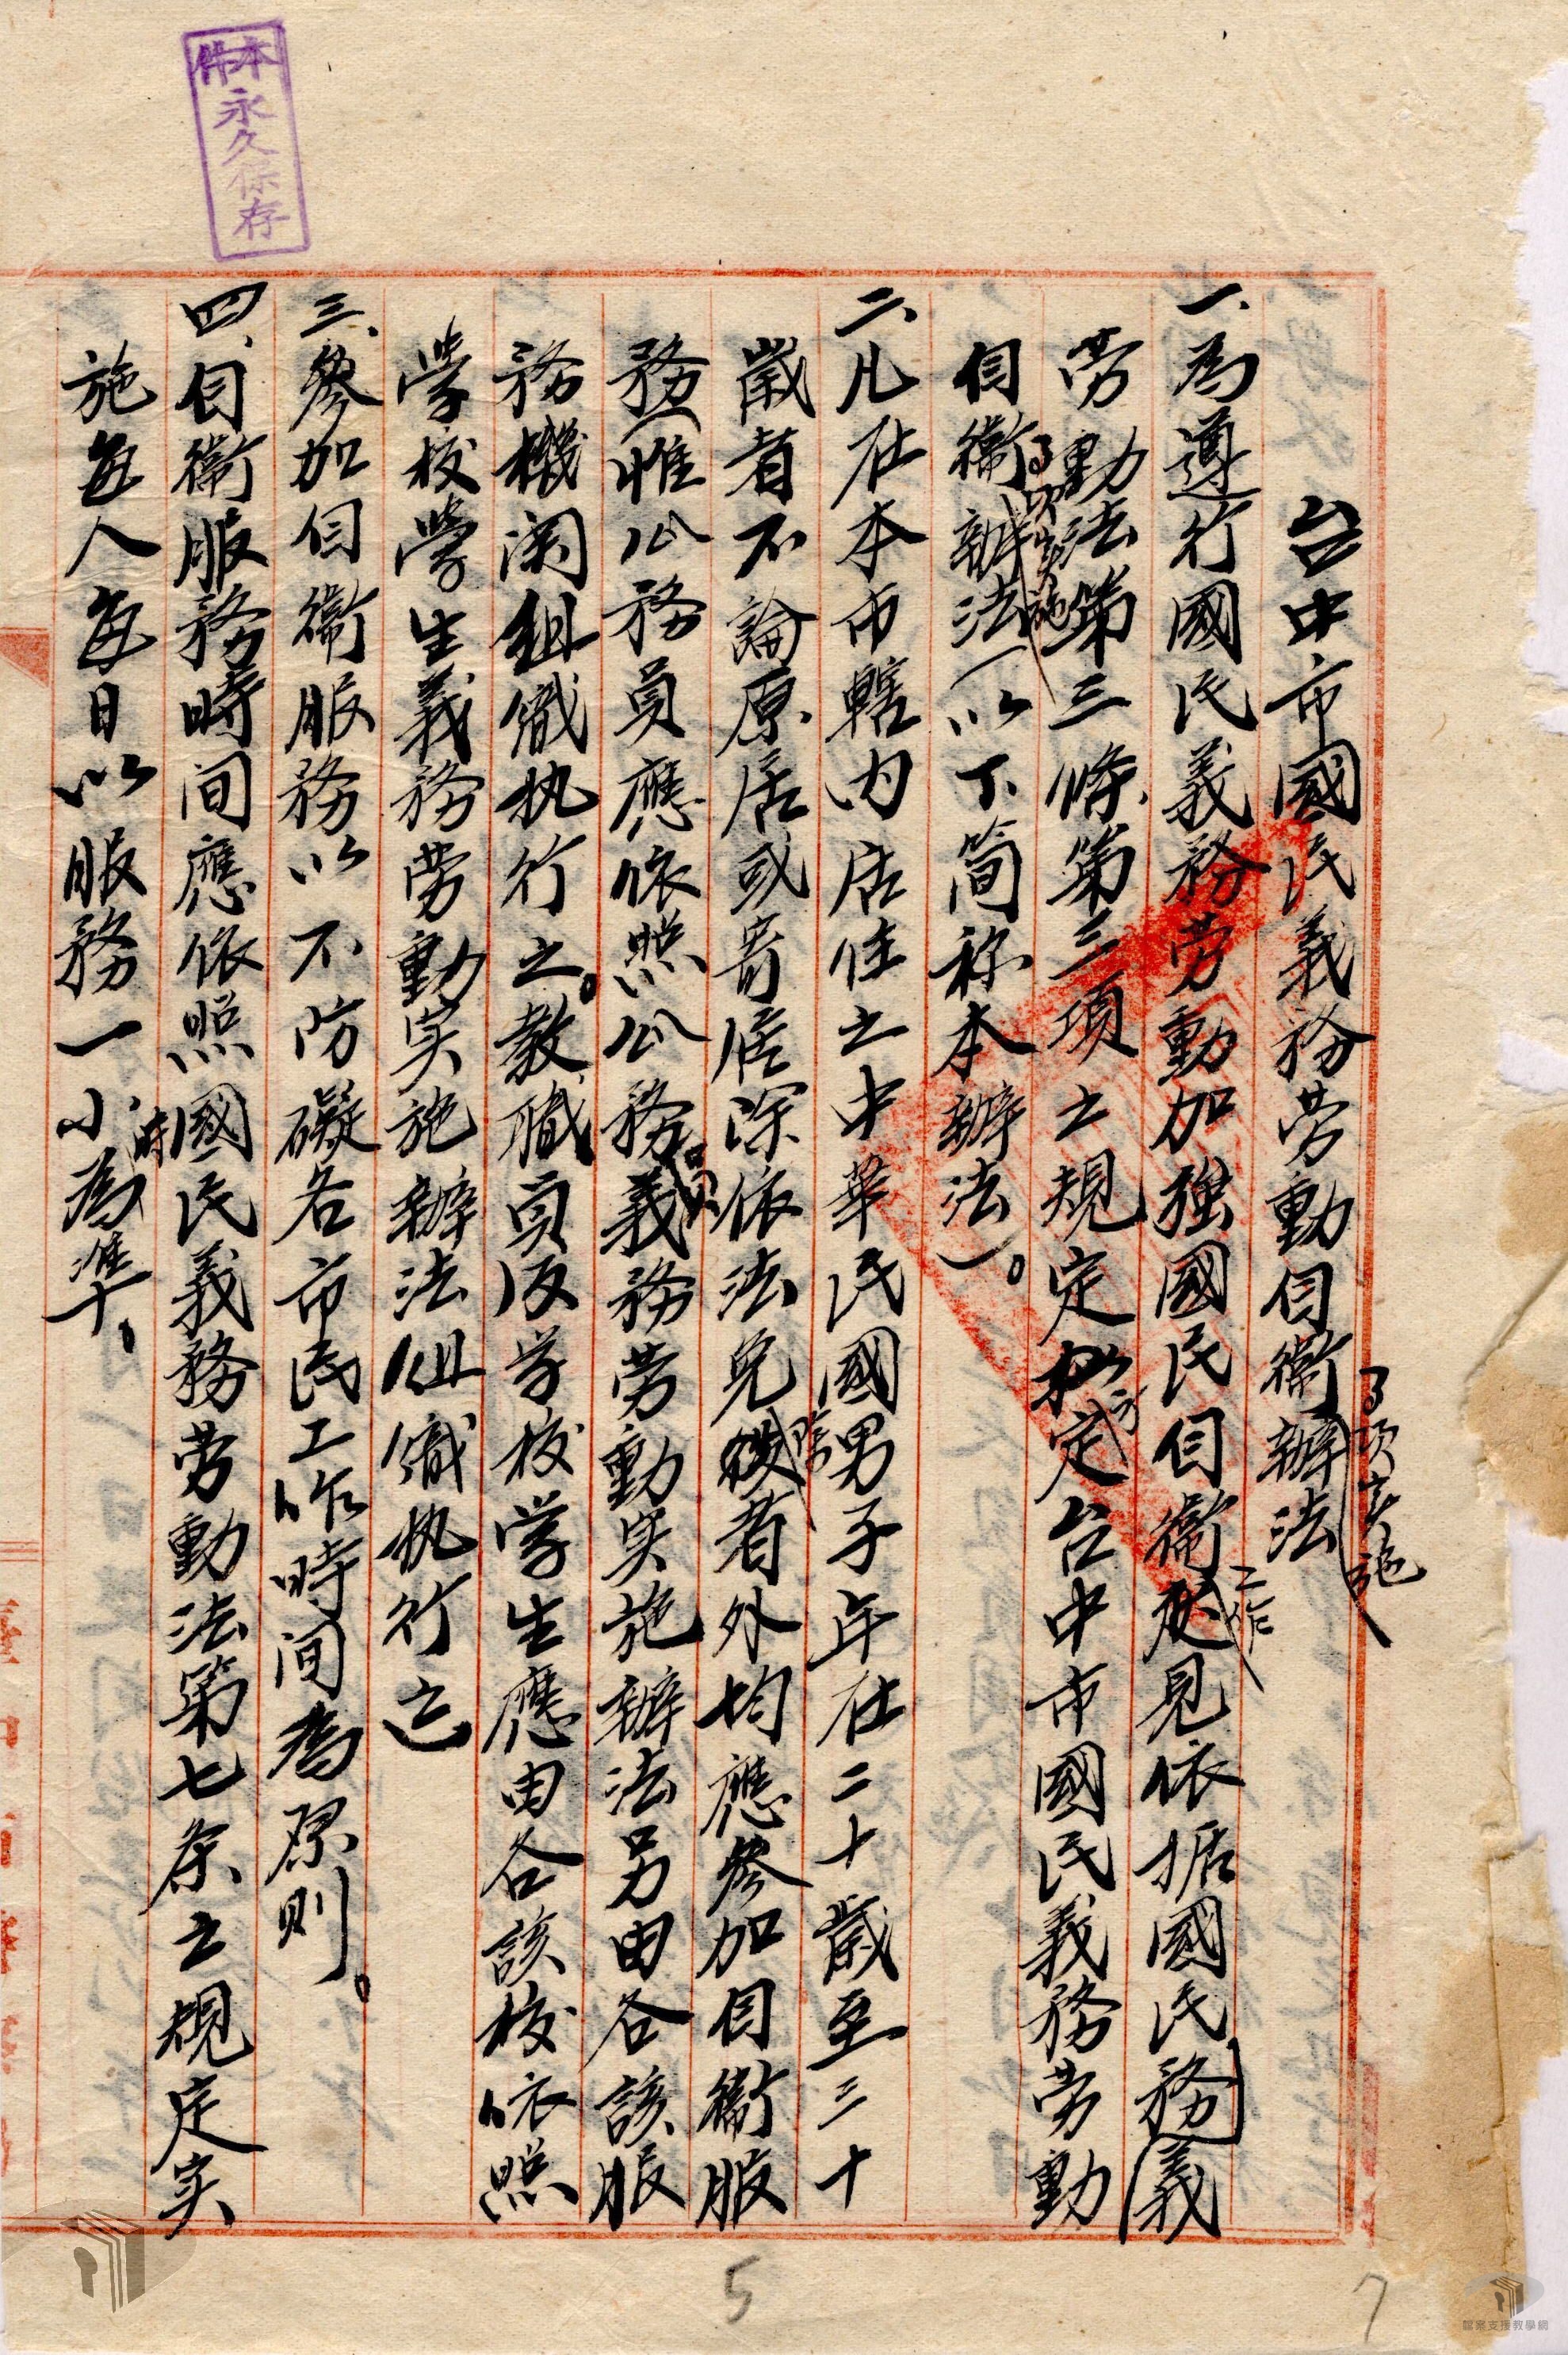 本件永久保存
台中市國民義務劳動自衛辦法
事項实施
一、為遵行國民義務劳動加強國民自衛起見依据國民務義
工作
劳動法第三條第三項之規定擬定台中市國民義務劳動
自衛辦法(以下简称本辦法)。
事項实施
二、凡在本市轄内居住之中華民國男子年在二十歲至三十
歲者不論原居或寄居除依法免役者外均應參加自衛服
除
務(惟公務員應依照公務義務劳動实施辦法另由各該服
員
務機関組織执行之。教職員及学校学生應由各該校依照
學校學生義務劳動实施辦法組織执行之
三、參加自衛服務以不防礙各市民工作時间為原则。
四、自衛服務時间應依照國民義務劳動法第七条之規定实
施每人每日以服務一小為準。
時
5
7
檔案支援教學網